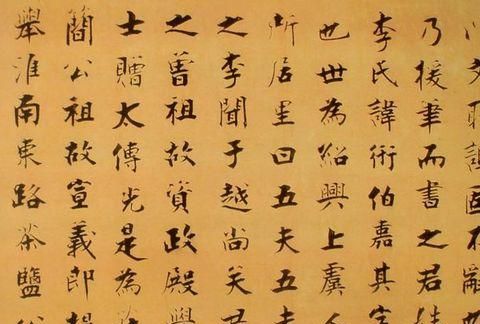 乃援筆而書之君
李氏諱術伯嘉其字
也世為紹興上虞人
所居里曰五夫五夫
之李聞于越尚矣君
之曾祖故資政殿學
士贈太傅光是為
簡公祖故宣義郎
舉淮南東路茶鹽